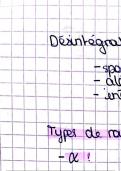 Désintégra
- spo
- alé
- in
Types de ra
- α :